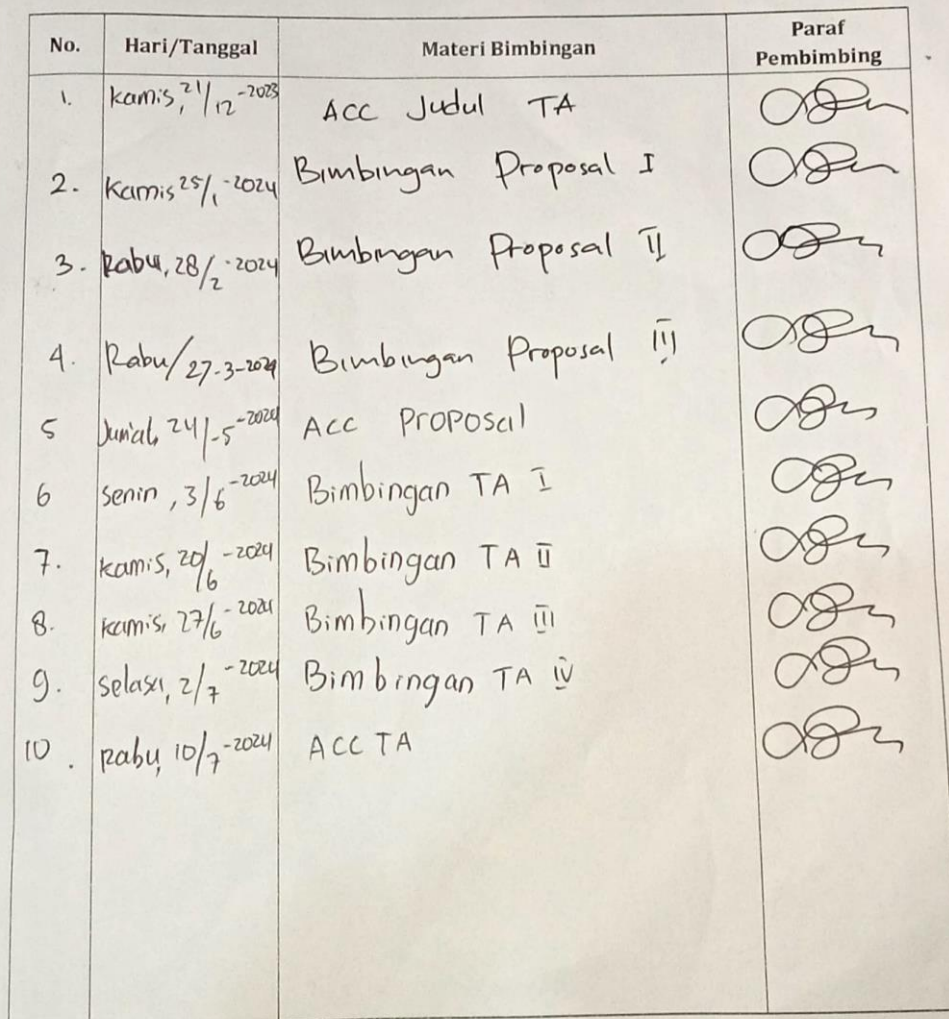 No. Hari/Tanggal Materi Bimbingan Paraf Pembimbing
1. Kamis, 21/12-2023 ACC Judul TA
2. Kamis 25/1-2024 Bimbingan Proposal I
3. Rabu, 28/2-2024 Bimbingan Proposal II
4. Rabu/27-3-2024 Bimbingan Proposal III
5 Jum'at, 24/-5-2024 ACC Proposal
6 Senin, 3/6-2024 Bimbingan TA I
7. Kamis, 20/6-2024 Bimbingan TA II
8. Kamis, 27/6-2024 Bimbingan TA III
9. Selasa, 2/7-2024 Bimbingan TA IV
10. Rabu, 10/7-2024 ACC TA